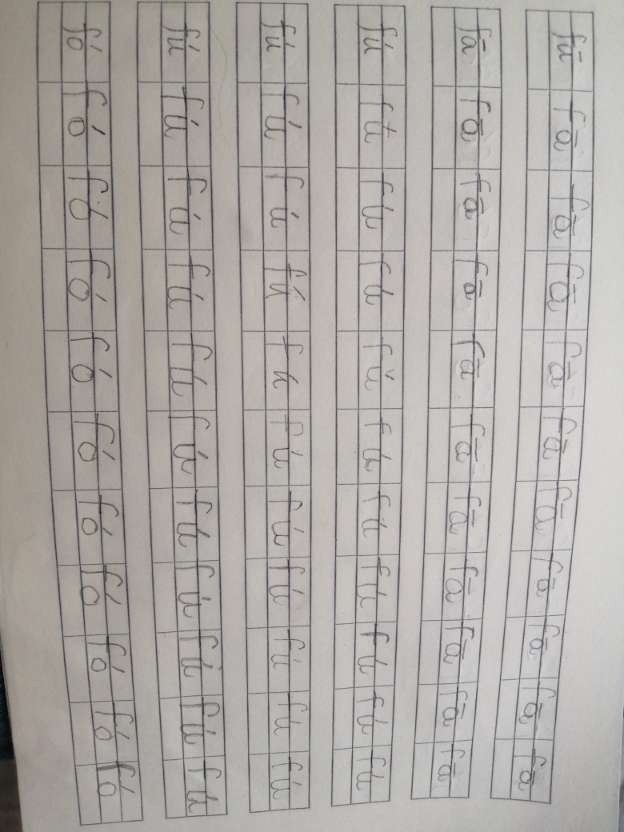 fū fā fā fā fā fā fā fā fā fā fā
fā fā fā fā fā fā fā fā fā fā fā
fú fú fú fú fú fú fú fú fú fú fú
fú fú fú fú fú fú fú fú fú fú fú
fú fú fú fú fú fú fú fú fú fú fú
fó fó fó fó fó fó fó fó fó fó fó